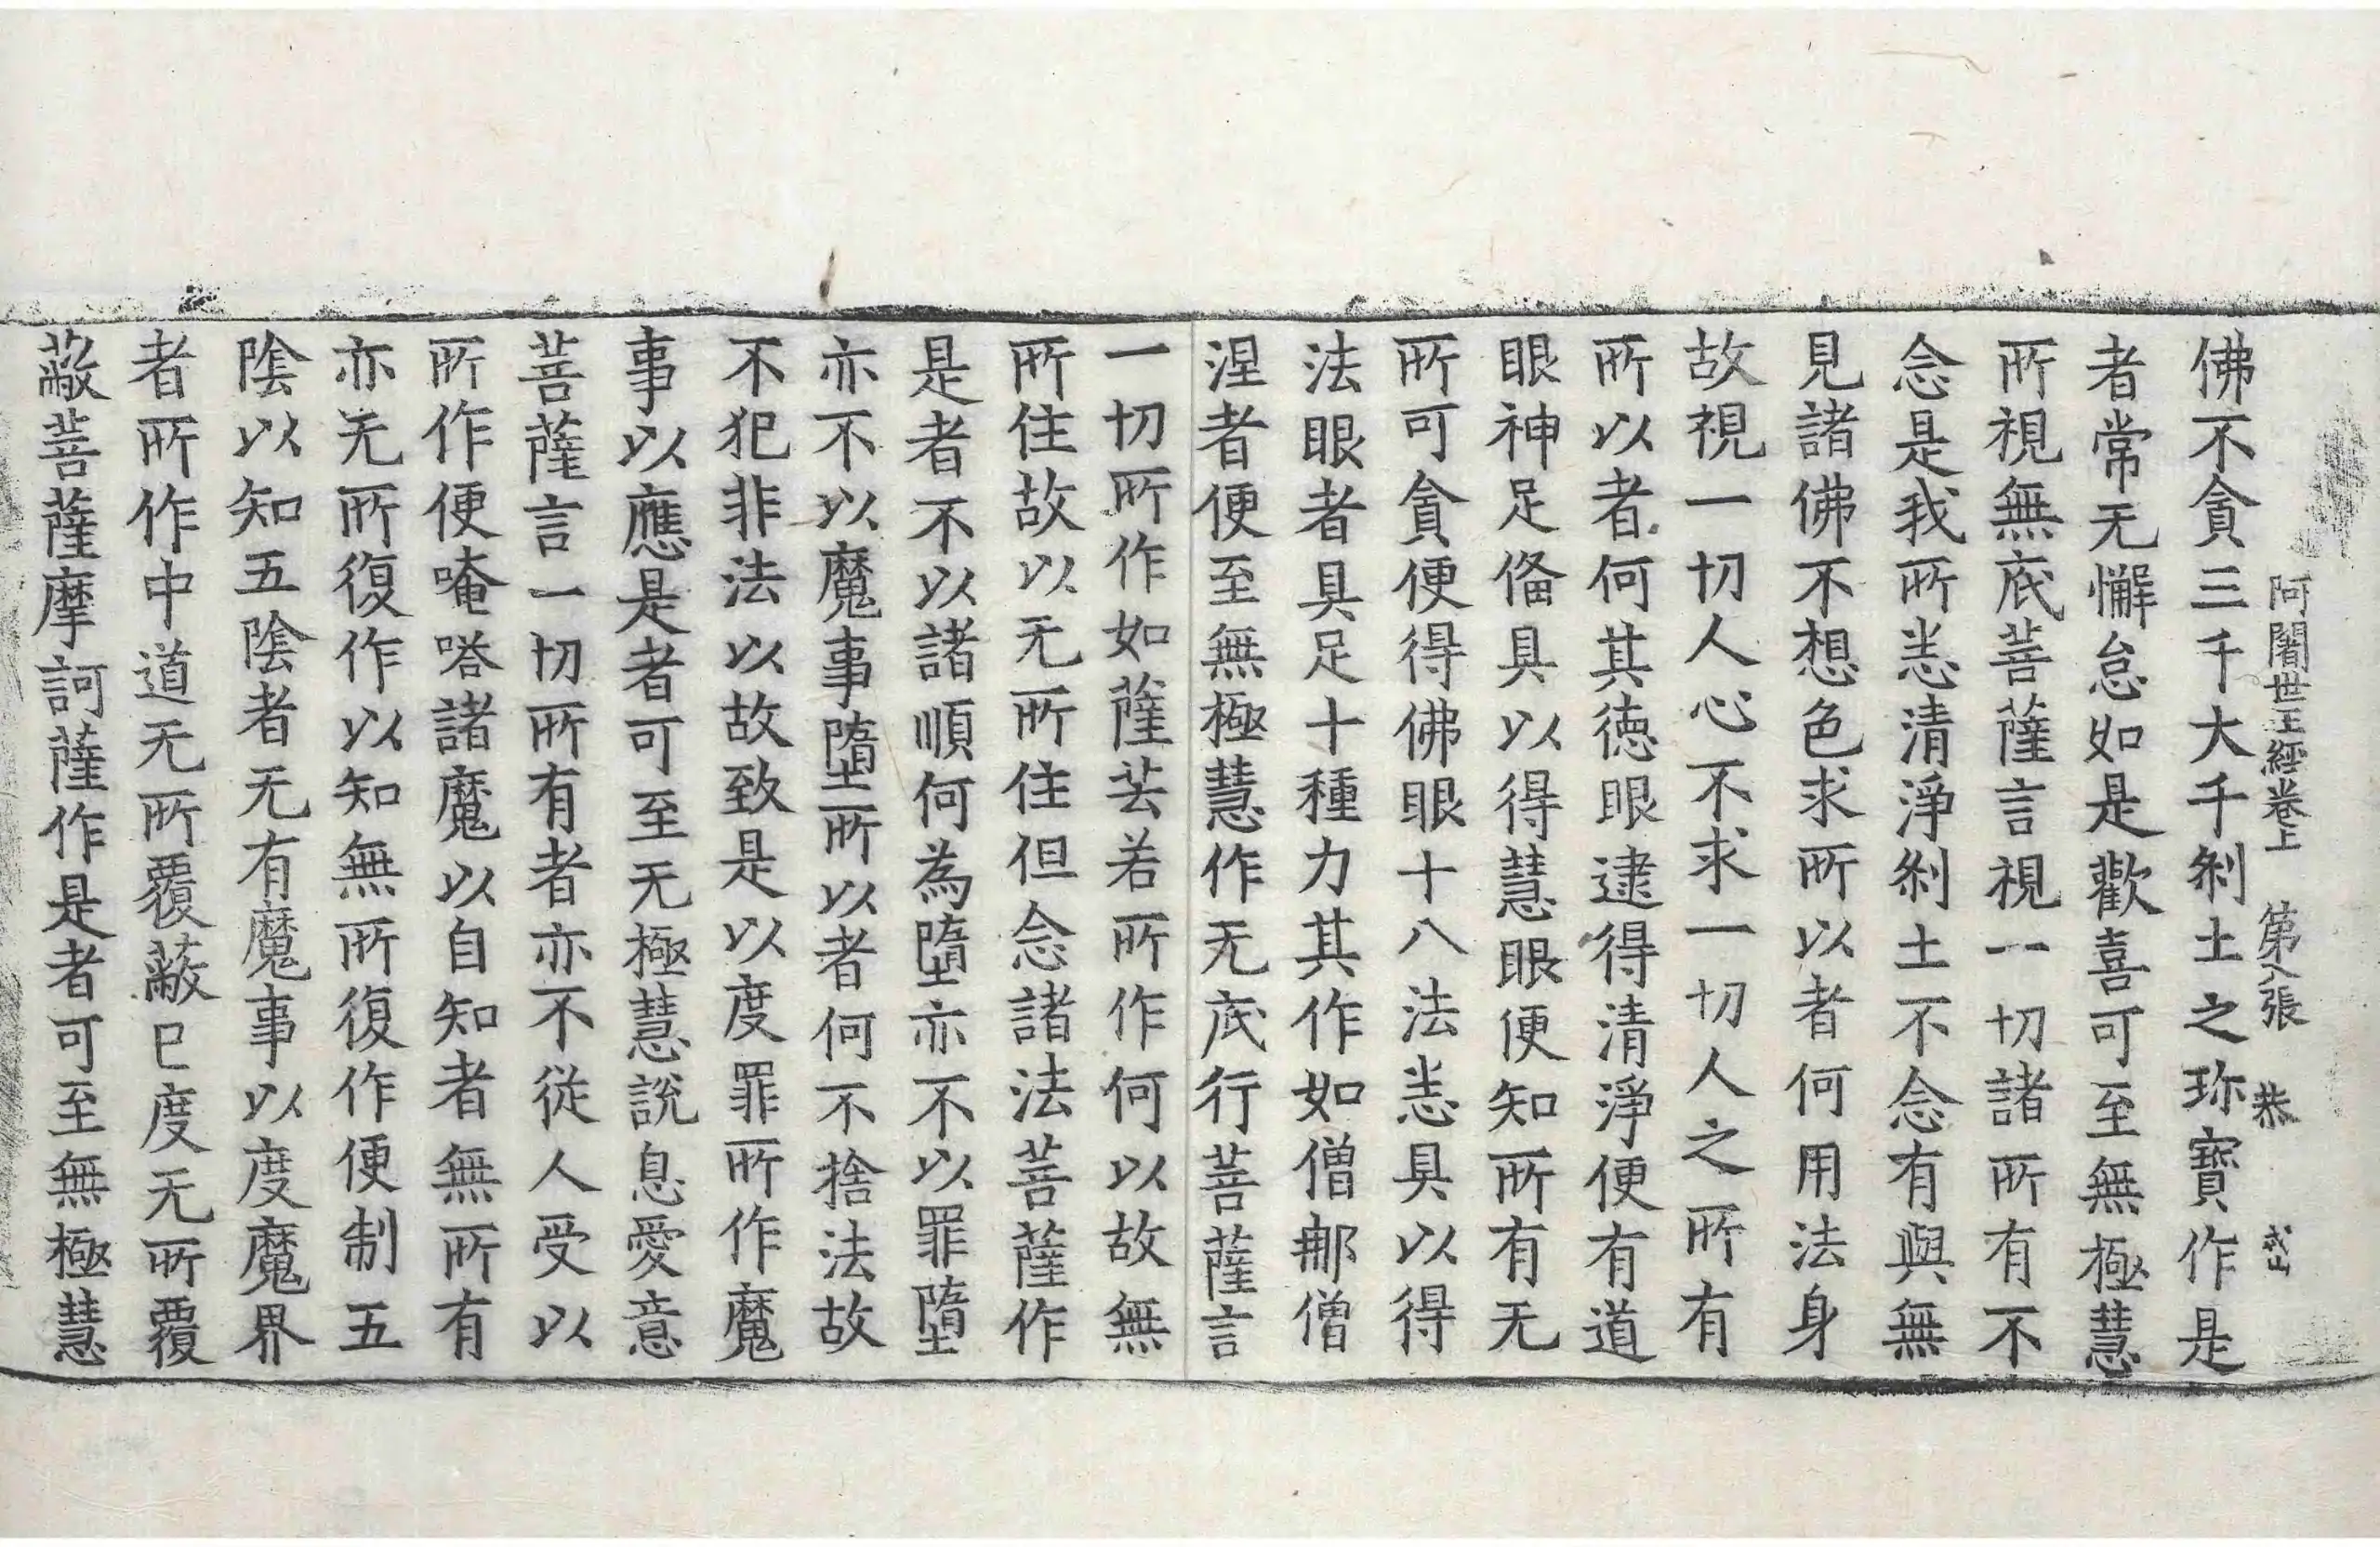 阿闍世王經卷上 第八張 恭
佛不貪三千大千刹土之珎寶作是
者常无懈怠如是歡喜可至無極慧
所視無底菩薩言視一切諸所有不
念是我所恙清淨刹土不念有與無
見諸佛不想色求所以者何用法身
故視一切人心不求一切人之所有
所以者何其徳眼逮得清淨便有道
眼神足俻具以得慧眼便知所有无
所可貪便得佛眼十八法恙具以得
法眼者具足十種力其作如僧郍僧
涅者便至無極慧作无底行菩薩言
一切所作如薩芸若所作何以故無
所住故以无所住但念諸法菩薩作
是者不以諸順何為墮亦不以罪墮
亦不以魔事墮所以者何不捨法故
不犯非法以故致是以度罪所作魔
事以應是者可至无極慧說息愛意
菩薩言一切所有者亦不從人受以
所作便唵嗒諸魔以自知者無所有
亦无所復作以知無所復作便制五
陰以知五陰者无有魔事以度魔界
者所作中道无所覆蔽已度无所覆
蔽菩薩摩訶薩作是者可至無極慧